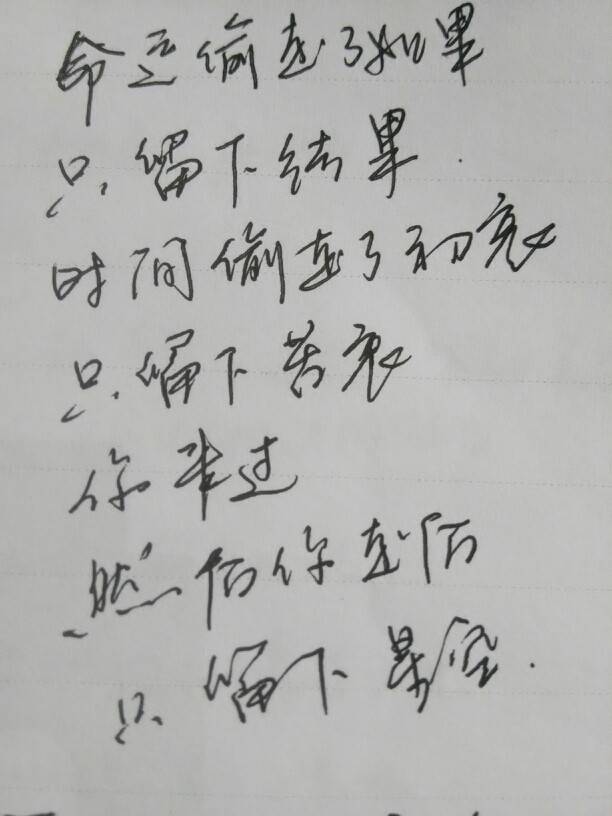 命运偷走了如果
只留下结果.
时间偷走了初衷
只留下苦衷
你来过
然后你走后
只留下星空.